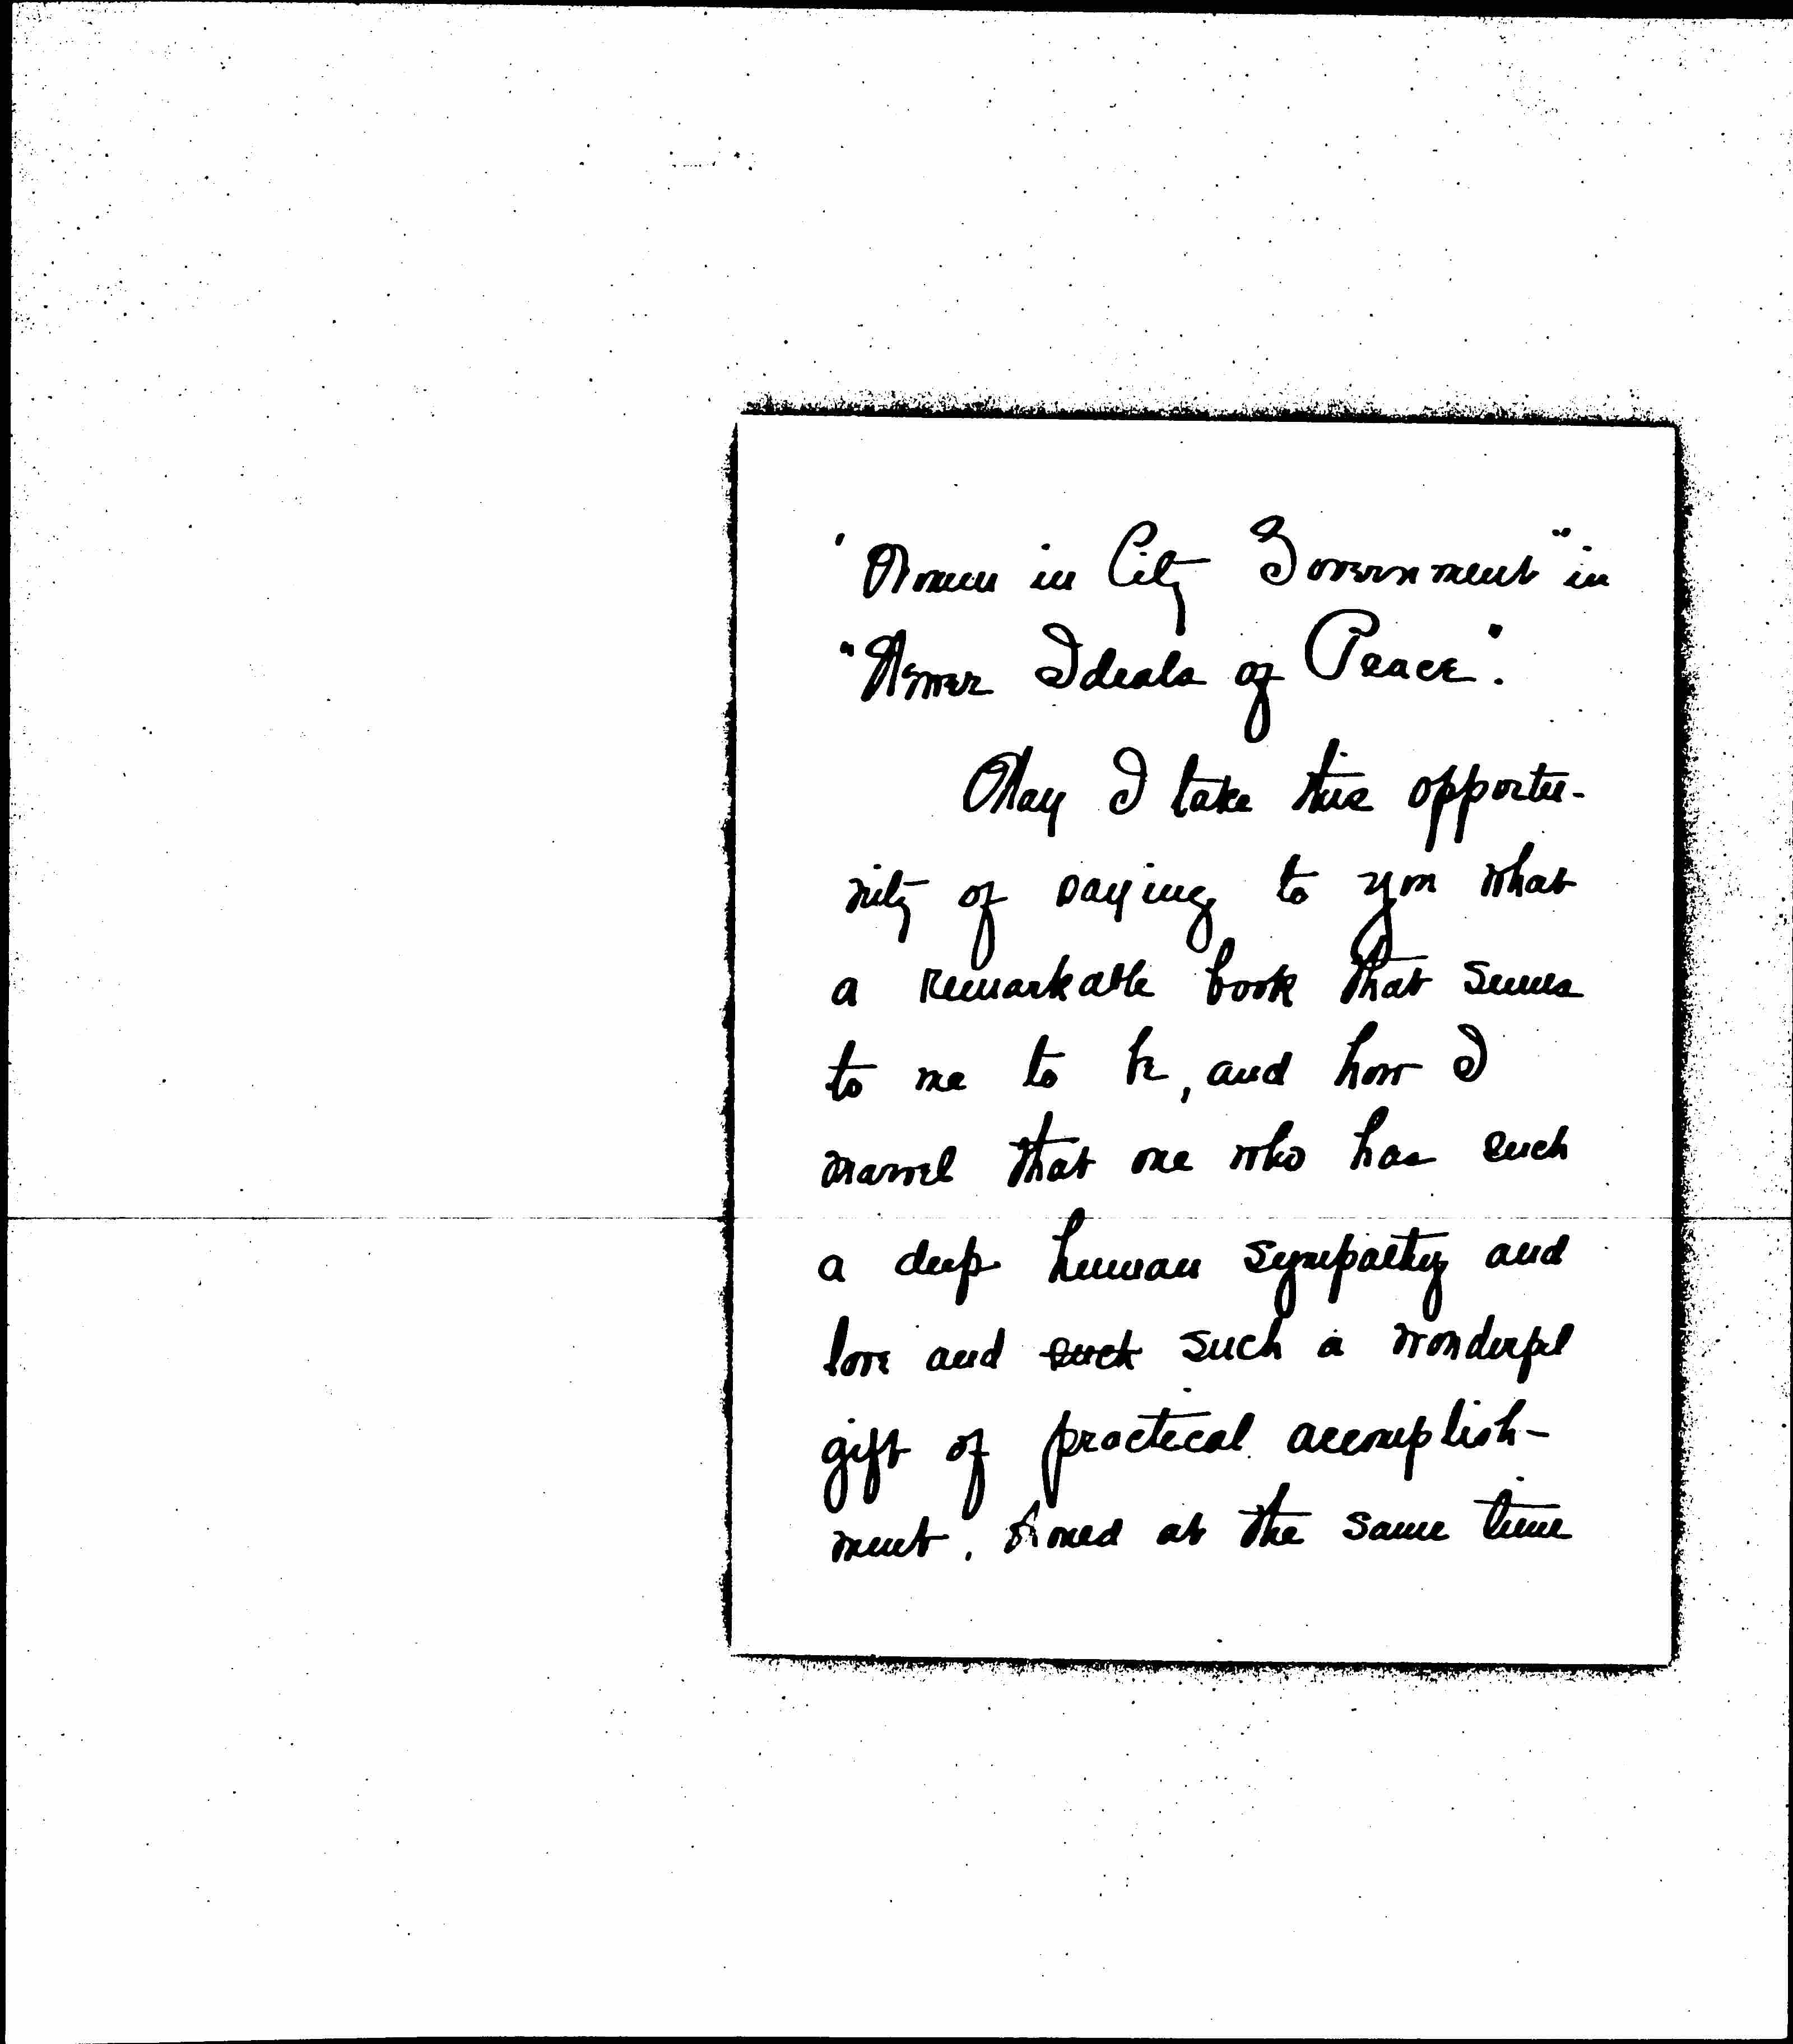 "Women in City Government" in
"Newer Ideals of Peace".
May I take this opportu-
nity of saying to you what
a remarkable book that seems
to me to be, and how I
marvel that one who has such
a deep human sympathy and
love and such such a wonderful
gift of practical accomplish-
ment, should at the same time